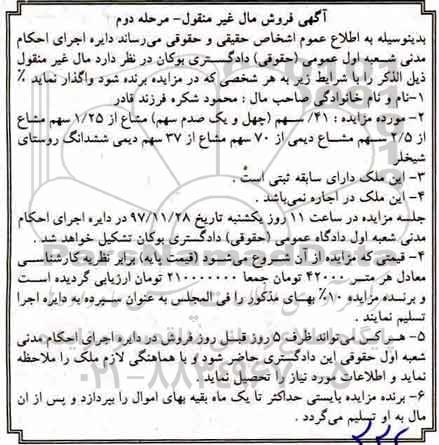 آگهی فروش مال غیر منقول- مرحله دوم
بدینوسیله به اطلاع عموم اشخاص حقیقی و حقوقی می‌رساند دایره اجرای احکام
مدنی شعبه اول عمومی (حقوقی) دادگستری بوکان در نظر دارد مال غیر منقول
ذیل الذکر را با شرایط زیر به هر شخصی که در مزایده برنده شود واگذار نماید ٪
۱-نام و نام خانوادگی صاحب مال : محمود شکره فرزند قادر
۲- مورده مزایده : ۴۱/ سهم (چهل و یک صدم سهم) مشاع از ۱/۲۵ سهم مشاع
از ۲/۵ سهم مشاع دیمی از ۷۰ سهم مشاع از ۳۷ سهم دیمی ششدانگ روستای
شیخلر
۳- این ملک دارای سابقه ثبتی است .
۴- این ملک در اجاره نمی‌باشد .
جلسه مزایده در ساعت ۱۱ روز یکشنبه تاریخ ۹۷/۱۱/۲۸ در دایره اجرای احکام
مدنی شعبه اول دادگاه عمومی (حقوقی) دادگستری بوکان تشکیل خواهد شد .
۴- قیمتی که مزایده از آن شروع می‌شود (قیمت پایه) برابر نظریه کارشناسی
معادل هر متر ۴۲۰۰۰ تومان جمعا ۲۱۰۰۰۰۰۰۰ تومان ارزیابی گردیده است
و برنده مزایده ۱۰٪ بهای مذکور را فی المجلس به عنوان سپرده به دایره اجرا
تسلیم نمایند .
۵- هر کس می‌تواند ظرف ۵ روز قبل روز فروش در دایره اجرای احکام مدنی
شعبه اول حقوقی این دادگستری حاضر شود و با هماهنگی لازم ملک را ملاحظه
نماید و اطلاعات مورد نیاز را تحصیل نماید .
۶- برنده مزایده بایستی حداکثر تا یک ماه بقیه بهای اموال را بپردازد و پس از ان
مال به او تسلیم می‌گردد .